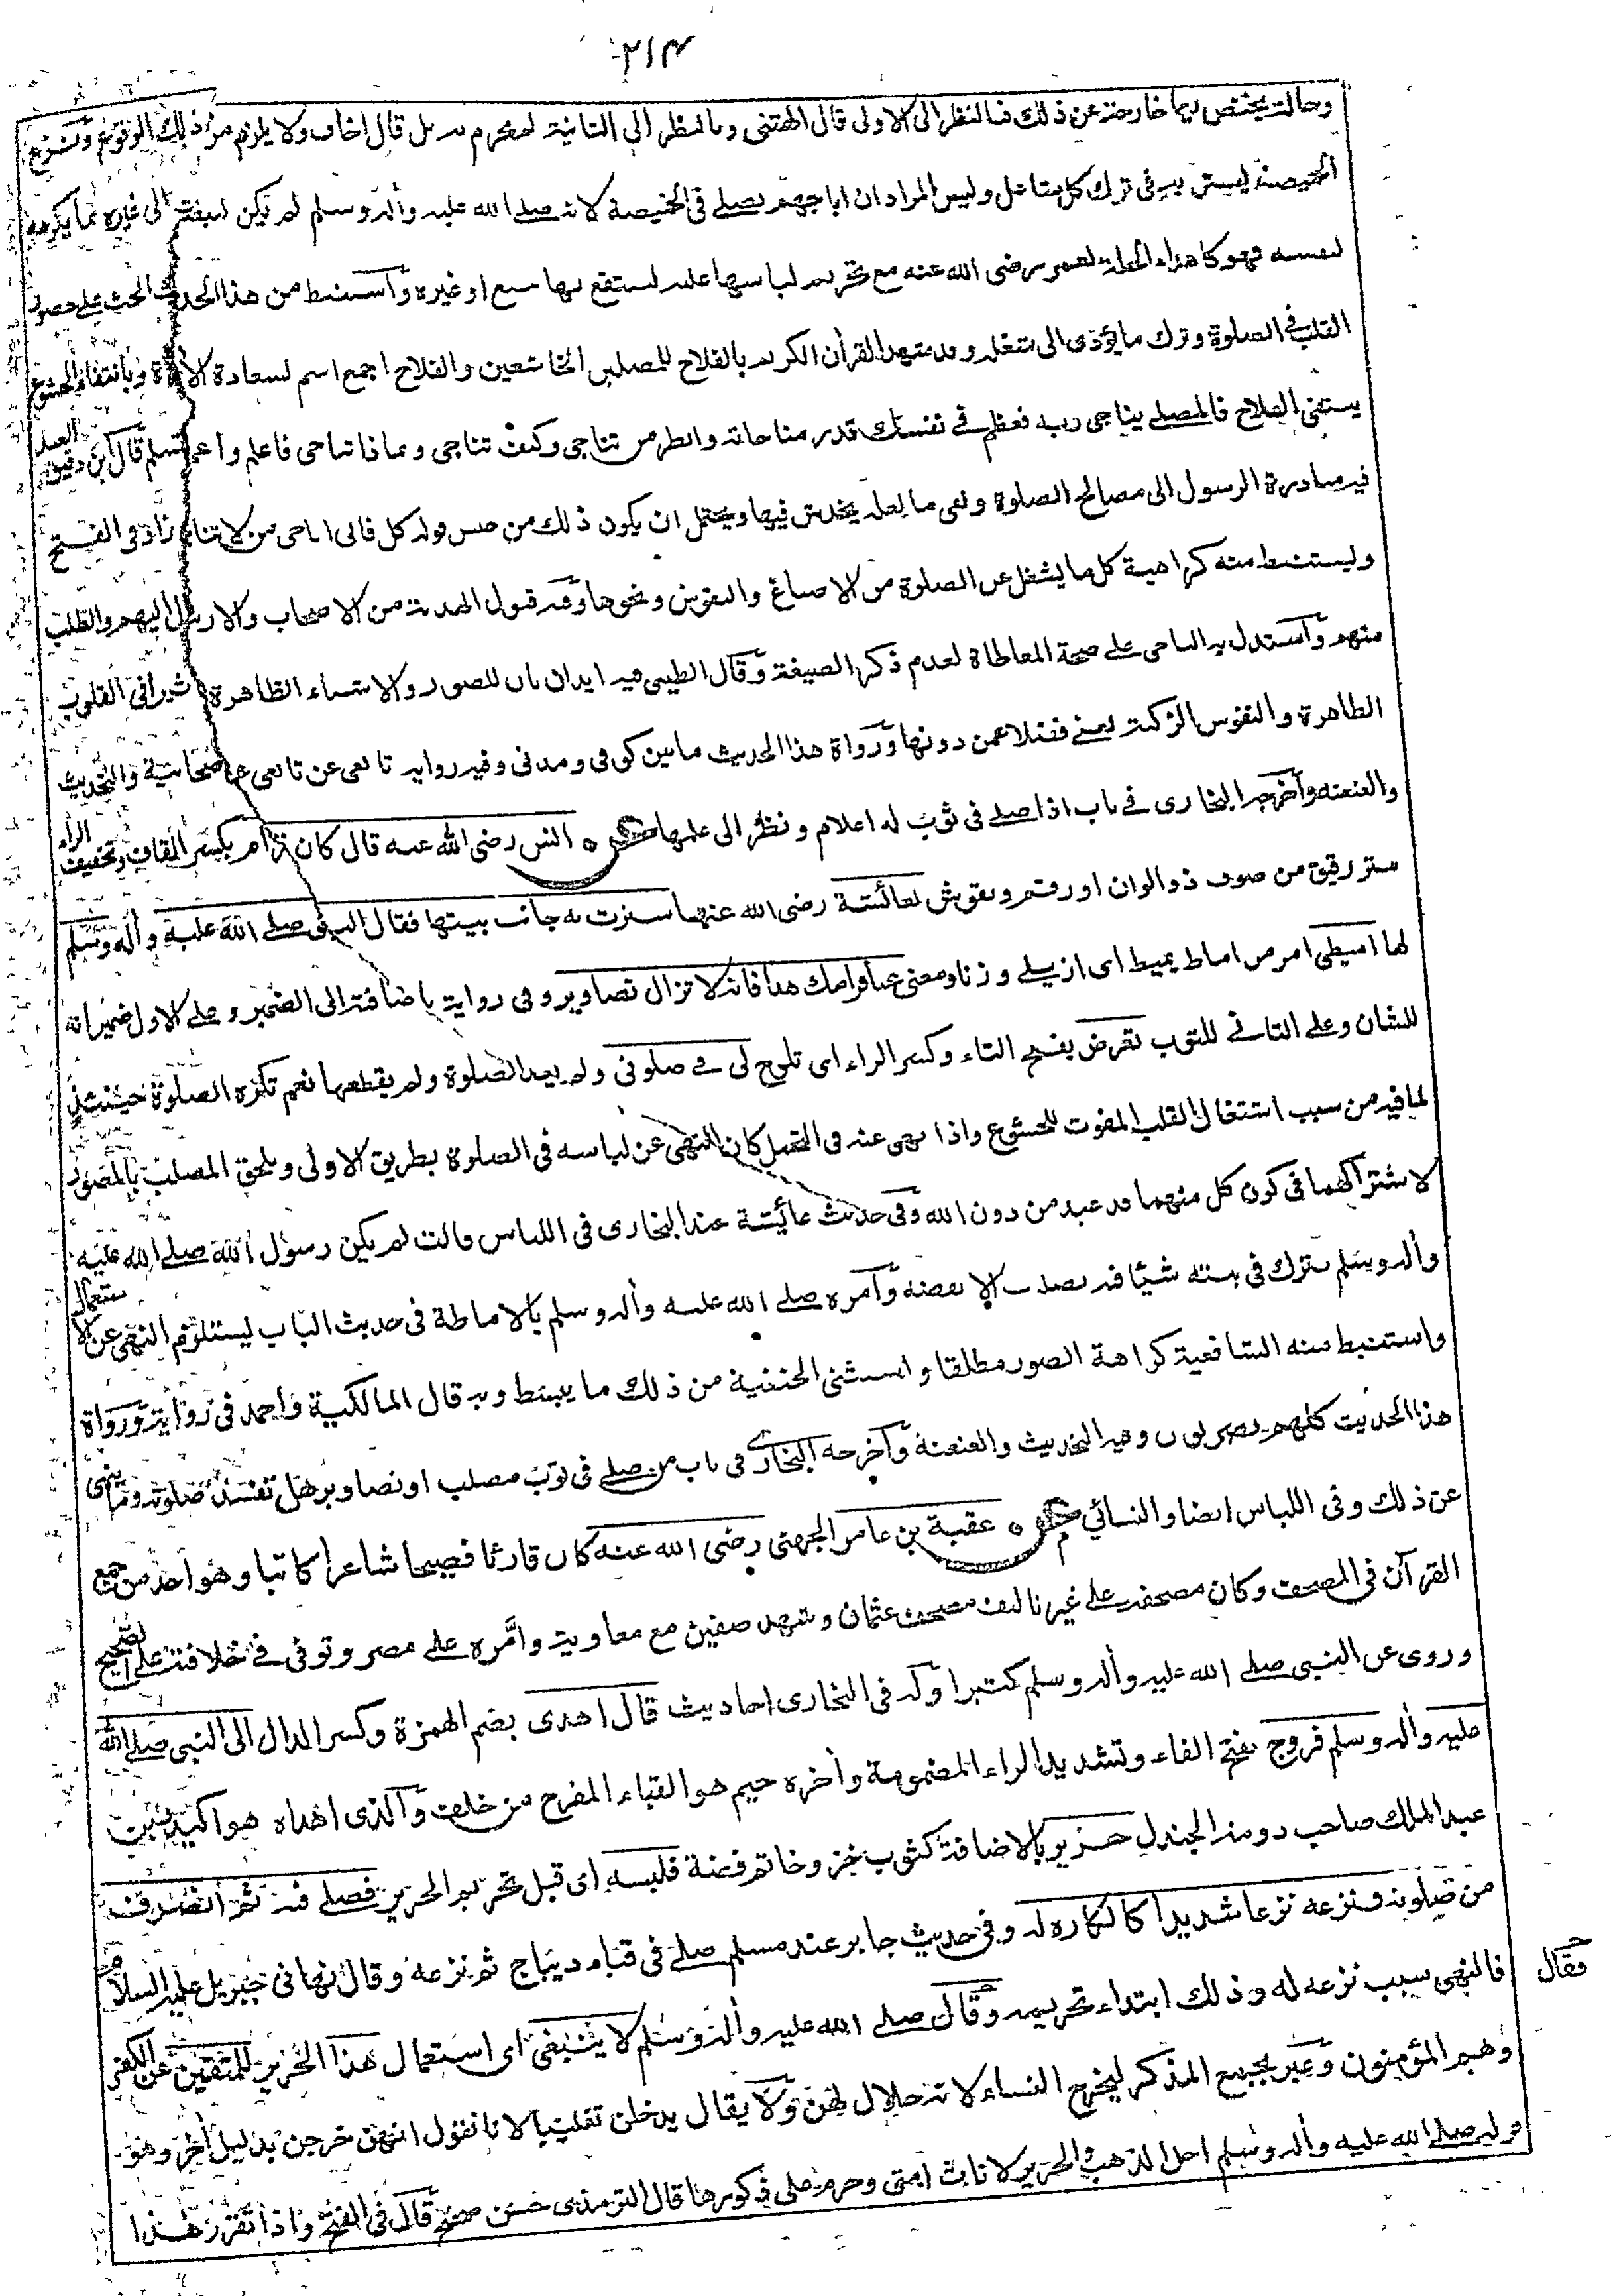 ٢١٣
وحالة يختص بها خارجة عن ذلك فبالنظر الى الاولى قال الهتنى وبالنظر الى الثانية لم يجزم به بل قال اخاف ولا يلزم من ذلك الوقوع ونزع
الخميصة ليستن به في ترك كل شاغل وليس المراد ان ابا جهم يصلي في الخميصة لانه صلى الله عليه وآله وسلم لم يكن ليبعث الى غيره بما يكرهه
لنفسه فهو كاهداء الحلة لعمر رضى الله عنه مع تحريم لباسها عليه لينتفع بها ببيع او غيره واستنبط من هذا الحديث الحث على حضور
القلب في الصلوة وترك ما يؤدى الى شغله وقد شهد القرآن الكريم بالفلاح للمصلين الخاشعين والفلاح اجمع اسم لسعادة الآخرة وبانتفاء الخشوع
ينتفى الفلاح فالمصلي يناجى ربه فعظم في نفسك قدر مناجاته وانظر من تناجى وكيف تناجى وبماذا تناجى فاعلم واعمل تسلم قال ابن دقيق العيد
فيه مبادرة الرسول الى مصالح الصلوة ونفى ما لعله يخدش فيها ويحتمل ان يكون ذلك من جنس قوله كل فانى اناجى من لا تناجى زاد في الفتح
ويستنبط منه كراهية كل ما يشغل عن الصلوة من الاصباغ والنقوش ونحوها وفيه قبول الهدية من الاصحاب والارسال اليهم والطلب
منهم واستدل به الباجى على صحة المعاطاة لعدم ذكر الصيغة وقال الطيبى فيه ايذان بان للصور والاشياء الظاهرة تاثيرا في القلوب
الطاهرة والنفوس الزكية يعنى فضلا عمن دونها ورواة هذا الحديث ما بين كوفى ومدنى وفيه رواية تابعى عن تابعى عن صحابية والتحديث
والعنعنة واخرجه البخارى في باب اذا صلى في ثوب له اعلام ونظر الى علمها ٥ انس رضى الله عنه قال كان قرام بكسر القاف وتخفيف الراء
ستر رقيق من صوف ذو الوان او رقم ونقوش لعائشة رضى الله عنها سترت به جانب بيتها فقال النبى صلى الله عليه وآله وسلم
لها اميطى امر من اماط يميط اى ازيلى وزنا ومعنى عنا قرامك هذا فانه لا تزال تصاوير وفى رواية باضافته الى الضمير وعلى الاول ضمير انه
للشان وعلى الثاني للثوب تعرض بفتح التاء وكسر الراء اى تلوح لى في صلوتى ولم يعد الصلوة ولم يقطعها نعم تكره الصلوة حينئذ
لما فيه من سبب اشتغال القلب المفوت للخشوع واذا نهى عنه في التجمل كان النهى عن لباسه في الصلوة بطريق الاولى ويلحق المصلب بالمصور
لاشتراكهما في كون كل منهما قد عبد من دون الله وفى حديث عائشة عند البخارى في اللباس قالت لم يكن رسول الله صلى الله عليه
وآله وسلم يترك في بيته شيئا فيه تصليب الا نقضه وامره صلى الله عليه وآله وسلم بالاماطة في حديث الباب يستلزم النهى عن الاستعمال
واستنبط منه الشافعية كراهة الصور مطلقا واستثنى الحنفية من ذلك ما يبسط وبه قال المالكية واحمد في رواية ورواة
هذا الحديث كلهم بصريون وفيه التحديث والعنعنة واخرجه البخارى في باب من صلى في ثوب مصلب او تصاوير هل تفسد صلوته وما ينهى
عن ذلك وفى اللباس ايضا والنسائي ٥ عقبة بن عامر الجهنى رضى الله عنه كان قارئا فصيحا شاعرا كاتبا وهو احد من جمع
القرآن في المصحف وكان مصحفه على غير تاليف مصحف عثمان وشهد صفين مع معاوية وامره على مصر وتوفى في خلافته على الصحيح
وروى عن النبى صلى الله عليه وآله وسلم كثيرا وله في البخارى احاديث قال اهدى بضم الهمزة وكسر الدال الى النبى صلى الله
عليه وآله وسلم فروج بفتح الفاء وتشديد الراء المضمومة وآخره جيم هو القباء المفرج من خلف والذى اهداه هو اكيدر بن
عبد الملك صاحب دومة الجندل حرير بالاضافة كثوب خز وخاتم فضة فلبسه اى قبل تحريم الحرير فصلى فيه ثم انصرف
من صلوته فنزعه نزعا شديدا كالكاره له وفى حديث جابر عند مسلم صلى في قباء ديباج ثم نزعه وقال نهانى جبريل عليه السلام
فالنهى سبب نزعه له وذلك ابتداء تحريمه وقال صلى الله عليه وآله وسلم لا ينبغى اى استعمال هذا الحرير للمتقين عن الكفر
فقال
وهم المؤمنون وعبر بجمع المذكر ليخرج النساء لانه حلال لهن ولا يقال يدخلن تغليبا لانا نقول انهن خرجن بدليل آخر وهو
قوله صلى الله عليه وآله وسلم احل الذهب والحرير لاناث امتى وحرم على ذكورها قال الترمذى حسن صحيح قال في الفتح واذا تقرر هذا